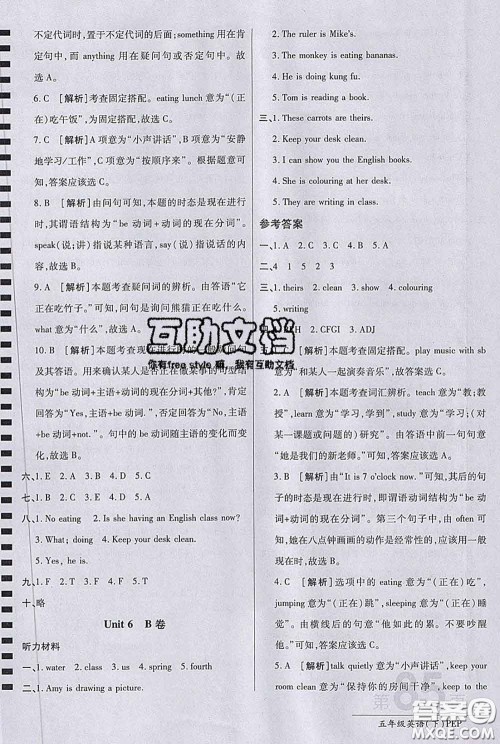 不定代词时，置于不定代词的后面；something 用在肯
定句中，而 anything 用在疑问句或否定句中。故
选 A。
6. C [解析]考查固定搭配。eating lunch 意为“（正
在）吃午饭”，为固定搭配。故选 C。
7. C [解析] A 项意为“小声讲话”，B 项意为“安静
地学习/工作”，C 项意为“按顺序来”。根据题意
可知，答案应该选 C。
8. B [解析]分析可知，本题的时态为现在进行时
态，其谓语结构为“be 动词+动词的现在分词”。
speak（说；讲）指说某种语言，say（说）指说话的内
容。故选 B。
9. A [解析]本题考查疑问词的辨析。由答语“它
正在吃竹子。”可知，问句是询问熊猫正在吃什么。
10. B [解析]本题考查现在进行时的一般疑问句
及其答语。
的结构为“be 动词+主语+动词的现在分词+其他？”，
其答语为“Yes, 主语+be 动词./No,
主语+be 动词+not.”。句中的 be 动词随主语的变化而变
化。故选 B。
六、1. E 2. A 3. B 4. D 5. C
七、1. B 2. A 3. C 4. D
八、1. No eating 2. Is she having an English class now?
3. What; doing 4. Keep your desk clean.
5. Yes, he is.
九、1. F 2. F 3. T 4. T
十、略
Unit 6 B 卷
听力材料
一、1. water 2. class 3. us 4. spring 5. fourth
二、1. Amy is drawing a picture.
2. The ruler is Mike's.
3. The monkey is eating bananas.
4. He is doing kung fu.
5. Tom is reading a book.
三、1. These carrots are theirs.
2. Keep your desk clean.
3. I can show you the English books.
4. She is colouring at her desk.
5. They are listening in class.
参考答案
一、1. A 2. C 3. C 4. B 5. A
二、4 1 5 2 3
5. writing
2. CFGI 3. ADJ
[解析]本题考查固定搭配。play music with sb
意为“和某人一起演奏音乐”。故选 A。
[解析]本题考查词汇辨析。teach 意为“教；教
授”，learn 意为“学习，学到”，study 意为“学习；（对
某一课题或问题的）研究”。由答语中前一句句意
“她是我们的新老师。”可知
3. B [解析]由“It is 7 o'clock now.”可知，其后的句
子的时态为现在进行时，即谓语动词结构为“be 动
词+动词的现在分词”。第三个句子中，由 often 可
知，她在八点钟画画的动作是经常性的，所以应为
一般现在时。故选 B。
4. C [解析]选项中的 eating 意为“（正在）吃”，
jumping 意为“（正在）跳”，sleeping 意为“（正在）
睡觉”。由前句句意“他如此的累。”可知后句为“不
要吵醒他。”
5. A [解析]talk quietly 意为“小声讲话”，keep your
room clean 意为“保持你的房间干净”，keep your
desk clean 意为“保持你的课桌干净”。
五年级英语（下）PEP
互助文档
你有free style 嘛，我有互助文档
第 85 页
答案圈
MXQE.COM